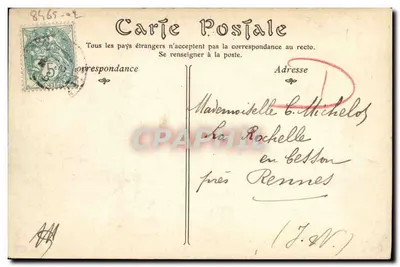 8465-02
Carte Postale
Tous les pays étrangers n'acceptent pas la correspondance au recto.
Se renseigner à la poste.
Correspondance
Adresse
D
Mademoiselle C. Michelot
La Rochelle
en Cesson
près Rennes
(I.-V.)